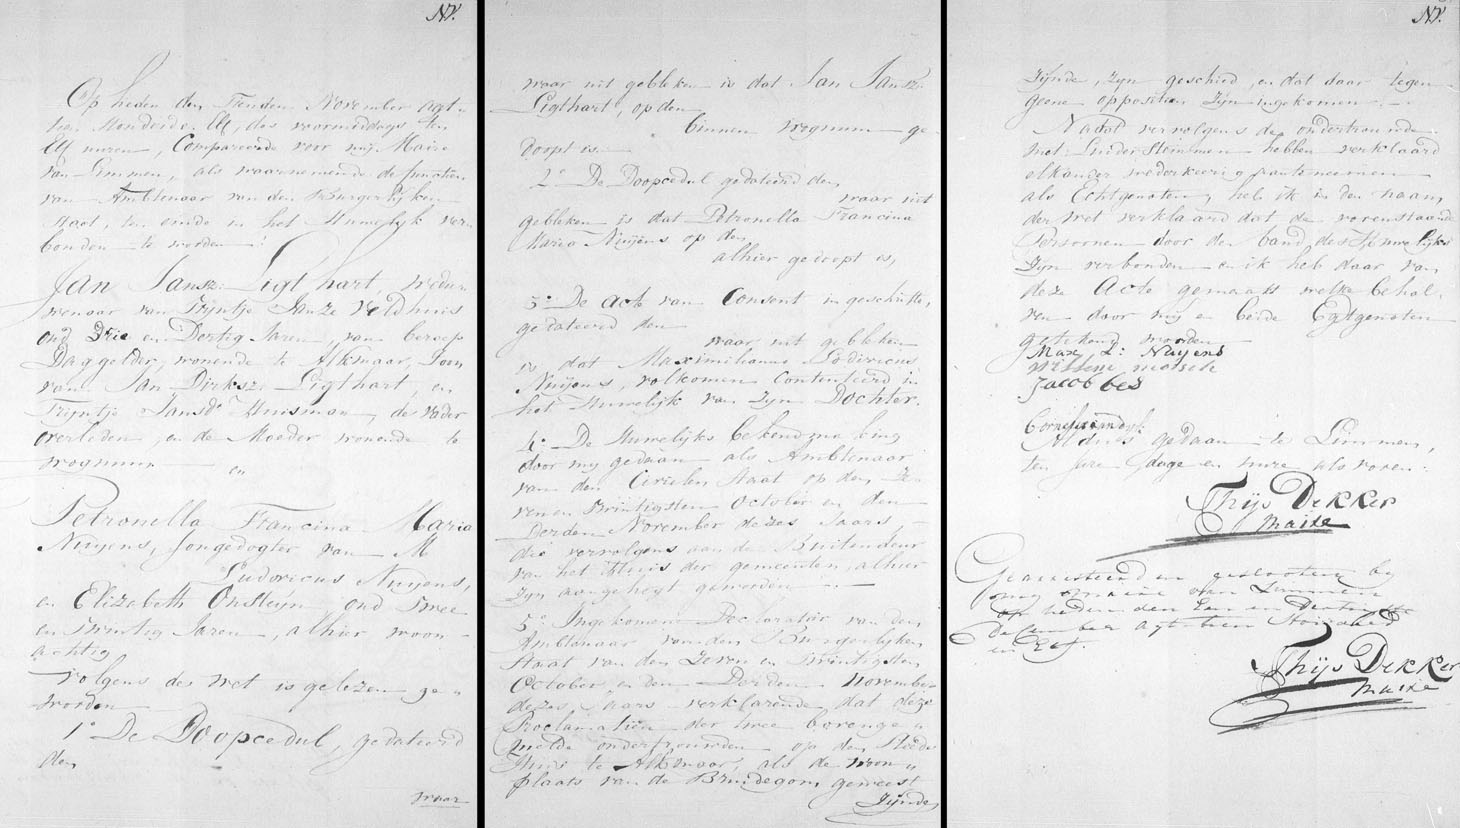 NV.
Op heden den Tienden November agt-
tien Honderd Elf, des voormiddags ten
Elf uuren, Compareerde voor mij Maire
van Limmen, als waarnemende de functien
van Amblenaar van den Burgerlyken
staat, ten einde in het Huwelyk ver
bonden te worden:
Jan Jansz: Ligthart, wedu-
wenaar van Tryntje Janze Veldhuis
oud Drie en Dertig Jaren, van beroep
Daggelder, wonende te Alkmaar, Zoon
van Jan Dirksz: Ligthart, en
Tryntje Jansdr Huisman, de vader
overleden, en de Moeder wonende te
Wognum
en
Petronella Francina Maria
Nuyens, Jongedogter van M
Ludovicus Nuyens,
en Elizabeth Onsteyn, oud twee
en twintig Jaren, alhier woon-
achtig
Volgens de wet is gelezen ge-
worden
1o De Doopcedul, gedateerd
den
waar
waar uit gebleken is dat Jan Jansz:
Ligthart, op den
binnen Wognum ge-
doopt is.
2o De Doopcedul gedateerd den
waar uit
gebleken is dat Petronella Francina
Maria Nuyens op den
alhier gedoopt is,
3o De acte van Consent in geschrifte,
gedateerd den
waar uit gebleken
is dat Maximilianus Lodivicus
Nuijens, volkomen Contenteerd in
het Huwelijk van Zyn Dochter.
4o De Huwelijks bekendmaking
door my gedaan als Amblenaar
van den Civielen Staat op den Ze-
ven en twintigsten October en den
Derden November dezes Jaars
die vervolgens aan de Buitendeur
van het Huis der gemeenten, alhier
Zyn aangehegt geworden
5o Ingekomen Declaratoir van den
Amblenaar van den Burgerlyken
Staat van den Zeven en twintigsten
October en den Derden November
dezes Jaars verklarende dat deze
Proclamatien der twee bovenge-
melde ondertrouwden op den Stede
Huis te Alkmaar, als de woon-
plaats van de Bruidegom geweest
Zijnde
NV.
Zijnde, Zyn geschied, en dat daar tegen
geene opposition Zyn ingekomen
Nadat vervolgens de ondertrouwde
met Luider Stemmen hebben verklaard
elkander wederkeerig aanteneemen
als Echtgenoten, heb ik in den naam
der wet verklaard dat de vorenstaande
Persoonen door den band des Huwelijks
Zyn verbonden en ik heb daar van
deze Acte gemaakt welke behal-
ven door my en beide Egtgenoten
getekend worden
Max L: Nuyens
Willem
Jacob bes
Aldus gedaan te Limmen,
ten Jare dage en uure als voren.
Thijs Dekker
Maire
Gearresteerd en geslooten by
my maire van Limmen
op heden den Een en Dertigste
December Agttien Honderd
en Elf.
Thijs Dekker
Maire